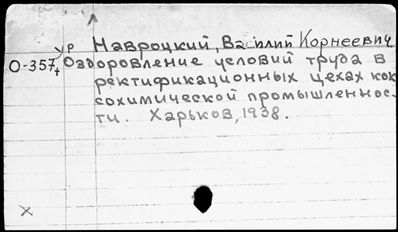 ур Навроцкий, Василий Корнеевич
О-357, Оздоровление условий труда в
ректификационных цехах кок
сохимической промышленнос-
ти. Харьков, 1938.